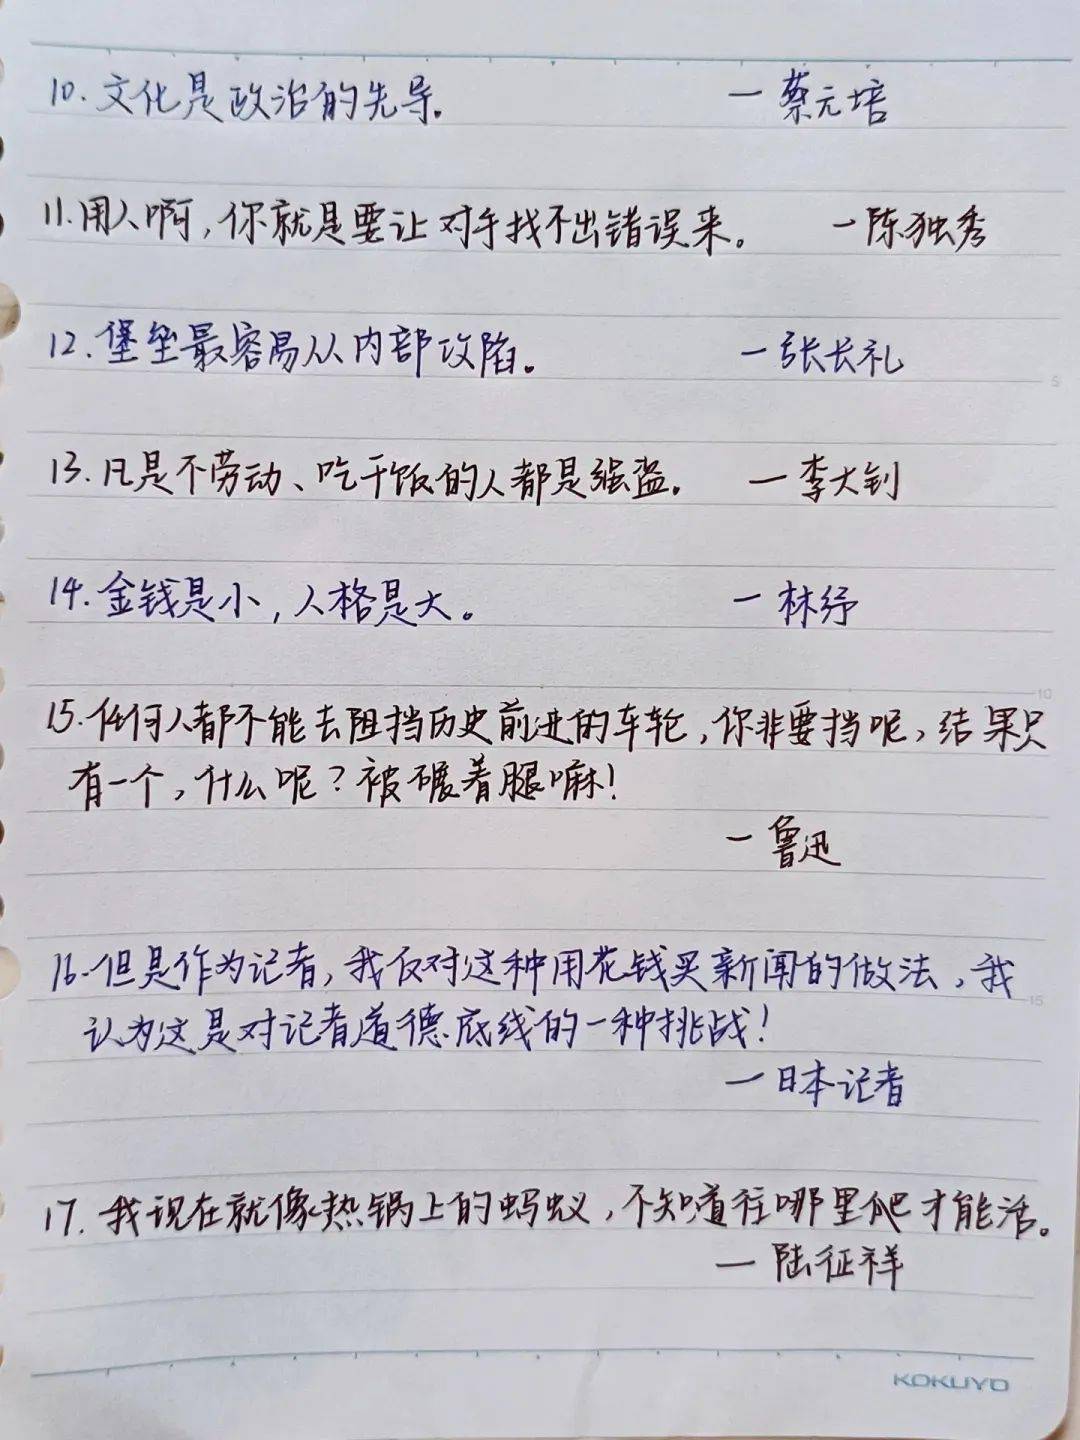 10. 文化是政治的先导. —蔡元培
11. 用人啊, 你就是要让对手找不出错误来。 —陈独秀
12. 堡垒最容易从内部攻陷。 —张长礼
5
13. 凡是不劳动、吃干饭的人都是强盗。 —李大钊
14. 金钱是小, 人格是大。 —林纾
10
15. 任何人都不能去阻挡历史前进的车轮, 你非要挡呢, 结果只
有一个, 什么呢? 被碾着腿嘛!
—鲁迅
16. 但是作为记者, 我仅对这种用花钱买新闻的做法, 我
15
认为这是对记者道德底线的一种挑战!
—日本记者
17. 我现在就像热锅上的蚂蚁, 不知道往哪里爬才能活。
—陆征祥
KOKUYO